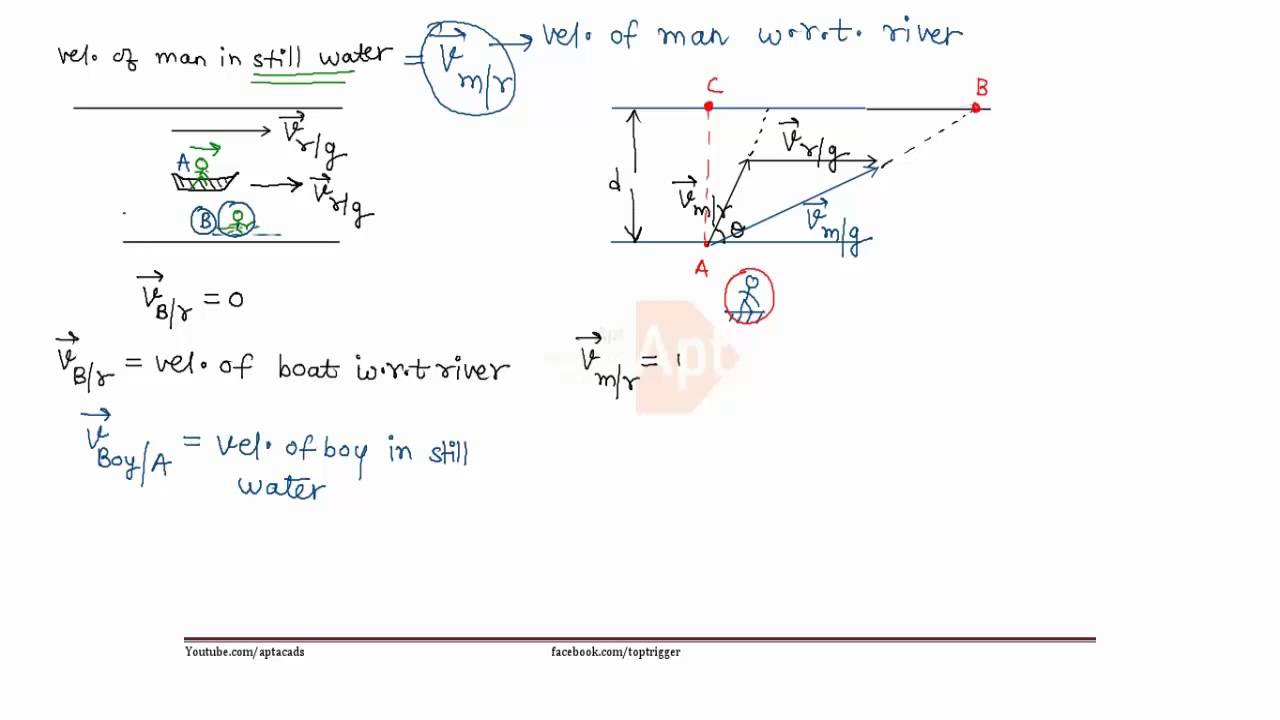 vel. of man in still water = v m/r → vel. of man w.r.t. river
v r/g
A
v r/g
B
v B/r = 0
v B/r = vel. of boat w.r.t river
v Boy/A = vel. of boy in still
water
C
B
v r/g
d
v m/r
θ
v m/g
A
v m/r = 
Apt
Youtube.com/aptacads
facebook.com/toptrigger